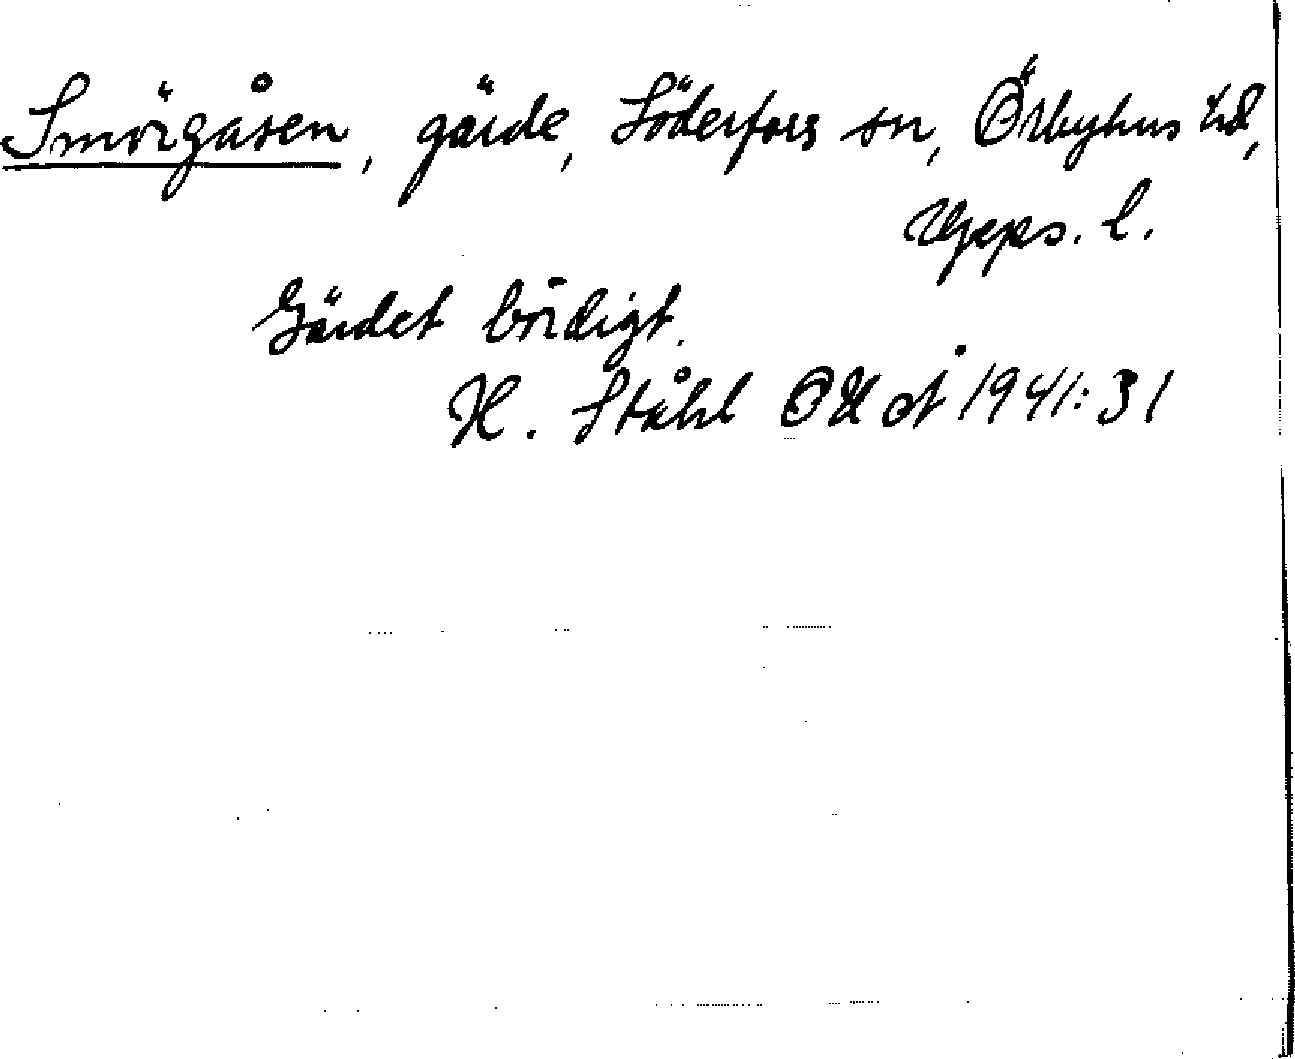 Smörgåsen, gärde, Söderfors sn, Örbyhus hd,
Upps. l.
Gärdet bördigt.
H. Ståhl OUÅ 1941:31